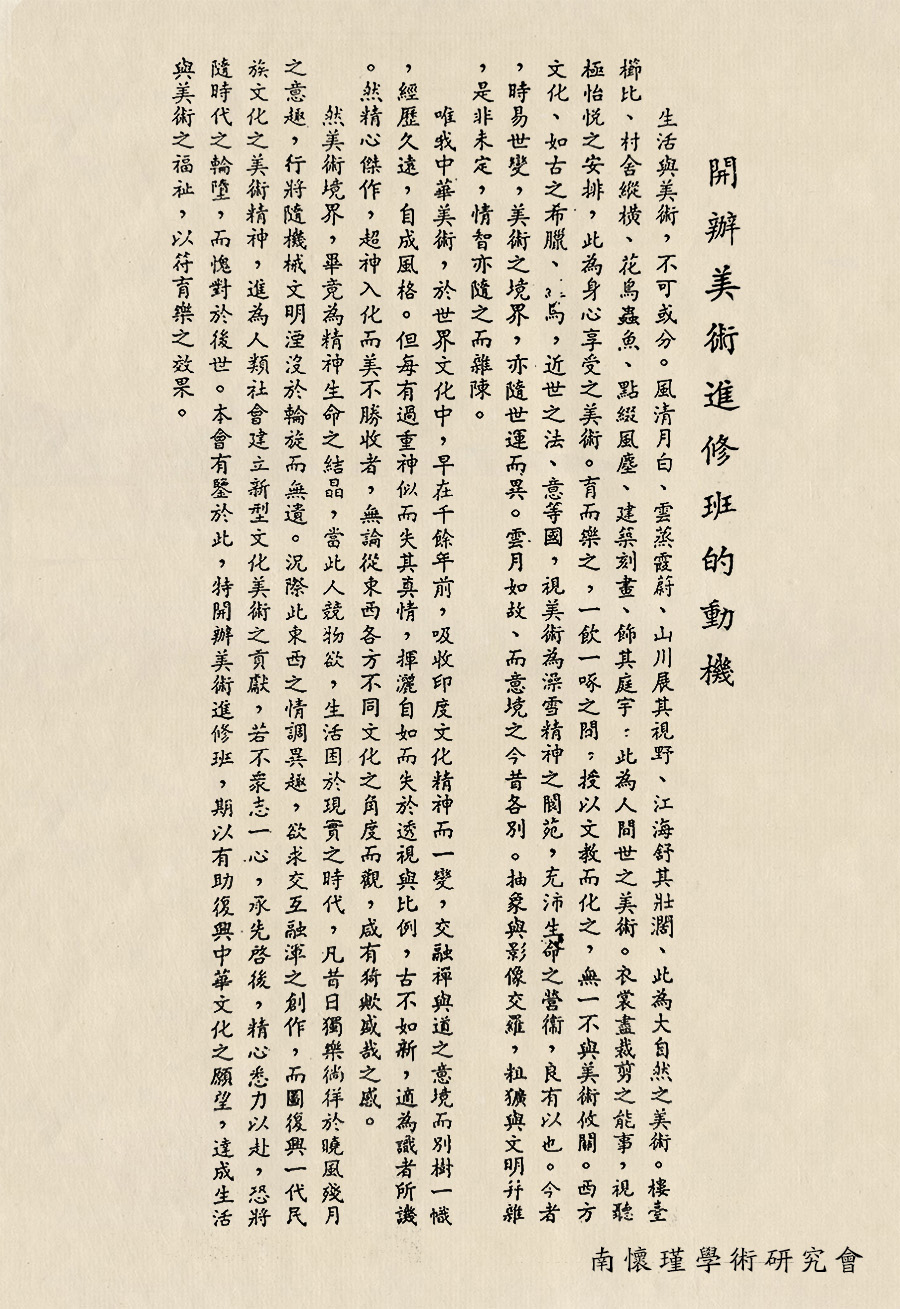 開辦美術進修班的動機
生活與美術，不可或分。風清月白、雲蒸霞蔚、山川展其視野、江海舒其壯濶、此為大自然之美術。樓臺
櫛比、村舍縱橫、花鳥蟲魚、點綴風塵、建築刻畫、飾其庭宇：此為人間世之美術。衣裳盡裁剪之能事，視聽
極怡悅之安排，此為身心享受之美術。育而樂之，一飲一啄之間；授以文教而化之，無一不與美術攸關。西方
文化、如古之希臘、馬，近世之法、意等國，視美術為澡雪精神之閬苑，充沛生命之營衞，良有以也。今者
，時易世變，美術之境界，亦隨世運而異。雲月如故、而意境之今昔各別。抽象與影像交羅，粗獷與文明并雜
，是非未定，情智亦隨之而雜陳。
唯我中華美術，於世界文化中，早在千餘年前，吸收印度文化精神而一變，交融禪與道之意境而別樹一幟
，經歷久遠，自成風格。但每有過重神似而失其真情，揮灑自如而失於透視與比例，古不如新，適為識者所譏
。然精心傑作，超神入化而美不勝收者，無論從東西各方不同文化之角度而觀，咸有猗歟盛哉之感。
然美術境界，畢竟為精神生命之結晶，當此人競物欲，生活困於現實之時代，凡昔日獨樂徜徉於曉風殘月
之意趣，行將隨機械文明湮沒於輪旋而無遺。況際此東西之情調異趣，欲求交互融渾之創作，而圖復興一代民
族文化之美術精神，進為人類社會建立新型文化美術之貢獻，若不衆志一心，承先啓後，精心悉力以赴，恐將
隨時代之輪墮，而愧對於後世。本會有鑒於此，特開辦美術進修班，期以有助復興中華文化之願望，達成生活
與美術之福祉，以符育樂之效果。
南懷瑾學術研究會